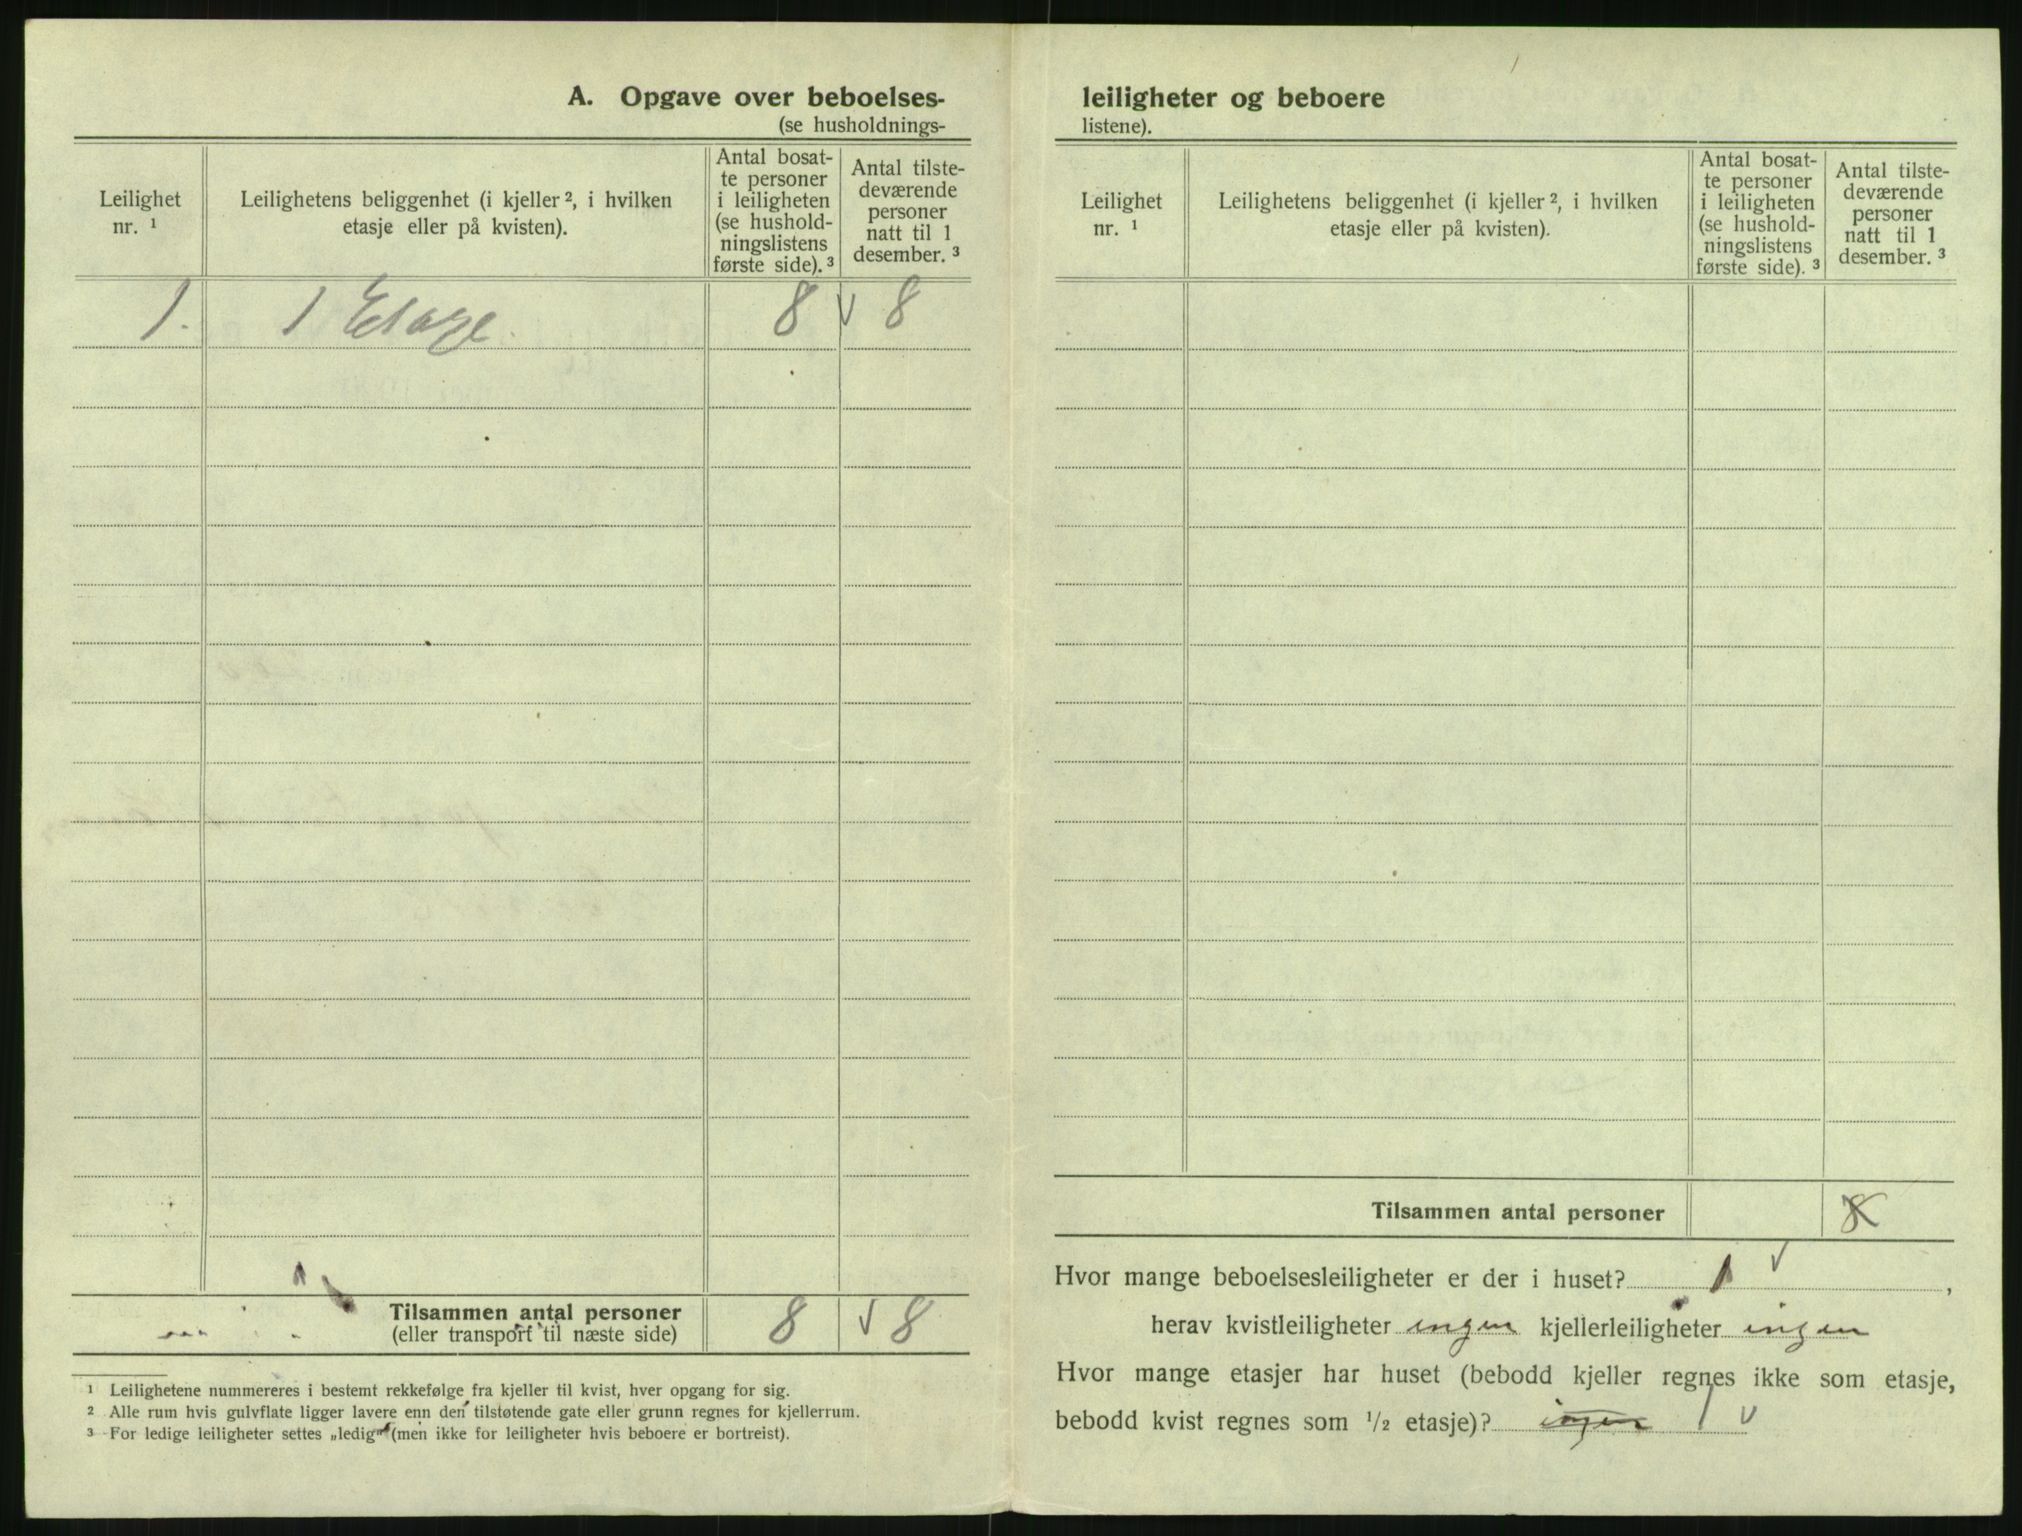 A. Opgave over beboelses-
(se husholdnings-
Leilighet nr. ¹
Leilighetens beliggenhet (i kjeller ², i hvilken etasje eller på kvisten).
Antal bosat-
te personer
i leiligheten
(se hushold-
ningslistens
første side). ³
Antal tilste-
deværende
personer
natt til 1
desember. ³
1. 1 Etage. 8 √ 8
Tilsammen antal personer 8 √ 8
(eller transport til næste side)
¹ Leilighetene nummereres i bestemt rekkefølge fra kjeller til kvist, hver opgang for sig.
² Alle rum hvis gulvflate ligger lavere enn den tilstøtende gate eller grunn regnes for kjellerrum.
³ For ledige leiligheter settes „ledig" (men ikke for leiligheter hvis beboere er bortreist).
leiligheter og beboere
listene).
Leilighet nr. ¹
Leilighetens beliggenhet (i kjeller ², i hvilken etasje eller på kvisten).
Antal bosat-
te personer
i leiligheten
(se hushold-
ningslistens
første side). ³
Antal tilste-
deværende
personer
natt til 1
desember. ³
Tilsammen antal personer 8
Hvor mange beboelsesleiligheter er der i huset? 1 √ ,
herav kvistleiligheter ingen kjellerleiligheter ingen
Hvor mange etasjer har huset (bebodd kjeller regnes ikke som etasje,
bebodd kvist regnes som ½ etasje)? ingen 1 √